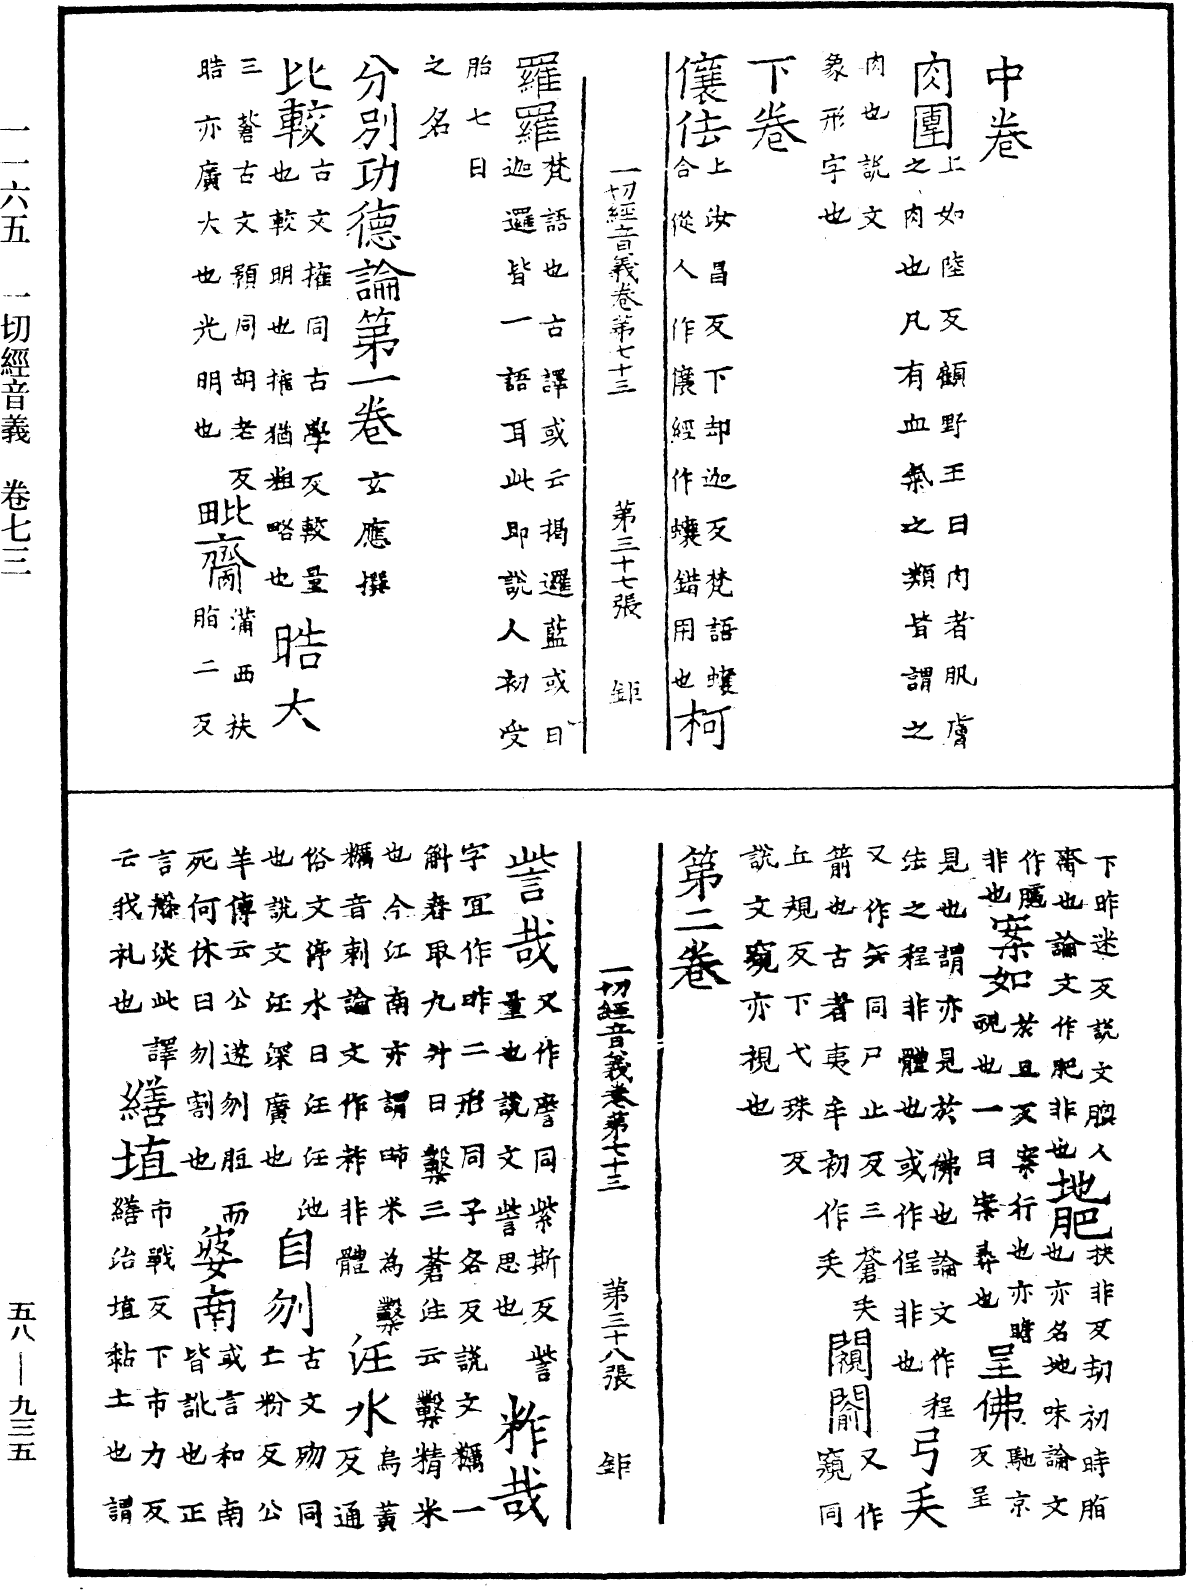 一一六五　一切經音義　卷七三
五八—九三五
中卷
肉團上如陸反顧野王曰肉者肌膚
之肉也凡有血氣之類皆謂之
肉也說文
象形字也
下卷
儴佉上汝昌反下却迦反梵語蠰
合從人作儴經作蠰錯用也柯
一切經音義卷第七十三　第三十七張　鉅
羅羅梵語也古譯或云揭邏藍或曰
迦邏皆一語耳此即說人初受
胎七日
之名
分別功德論第一卷玄應撰
比較古文㩁同古學反較量
也較明也㩁猶粗略也晧大
三蒼古文顥同胡老反
晧亦廣大也光明也毗齋蒲西扶
脂二反
下昨迷反說文𦝫人
齋也論文作肥非也地肥扶非反劫初時脂
也亦名地味論文
作
非也案如於旦反案行也亦瞻
視也一曰案彞也呈佛馳京
反呈
見也謂亦見於佛也論文作程
法之程非體也或作俚非也弓矢
又作𠂕同尸止反三蒼矢
箭也古者夷牟初作矢闚闟又作
窺同
丘規反下弋珠反
說文窺亦視也
第二卷
一切經音義卷第七十三　第三十八張　鉅
訾哉又作㰣同紫斯反訾
量也說文訾思也柞哉
字宜作昨二形同子各反說文糲一
斛舂取九升曰糳三蒼注云糳精米
也今江南亦謂師米為糳
糲音剌論文作柞非體汪水烏黃
反通
俗文停水曰汪汪池
也說文汪深廣也自刎古文歾同
亡粉反公
羊傳云公遂刎脰而
死何休曰刎割也婆南或言和南
皆訛也正
言槃淡此譯
云我礼也繕埴市戰反下市力反
繕治埴黏土也謂